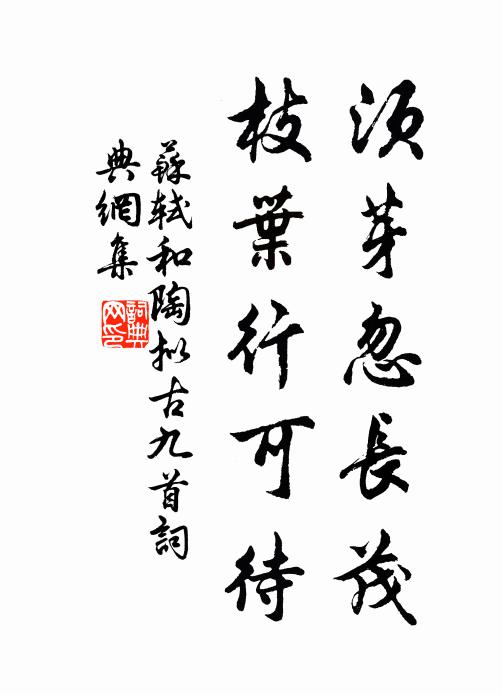 須芽忽長茂
枝葉行可待
蘇軾和陶拟古九首詞
典網集
詞典
网印